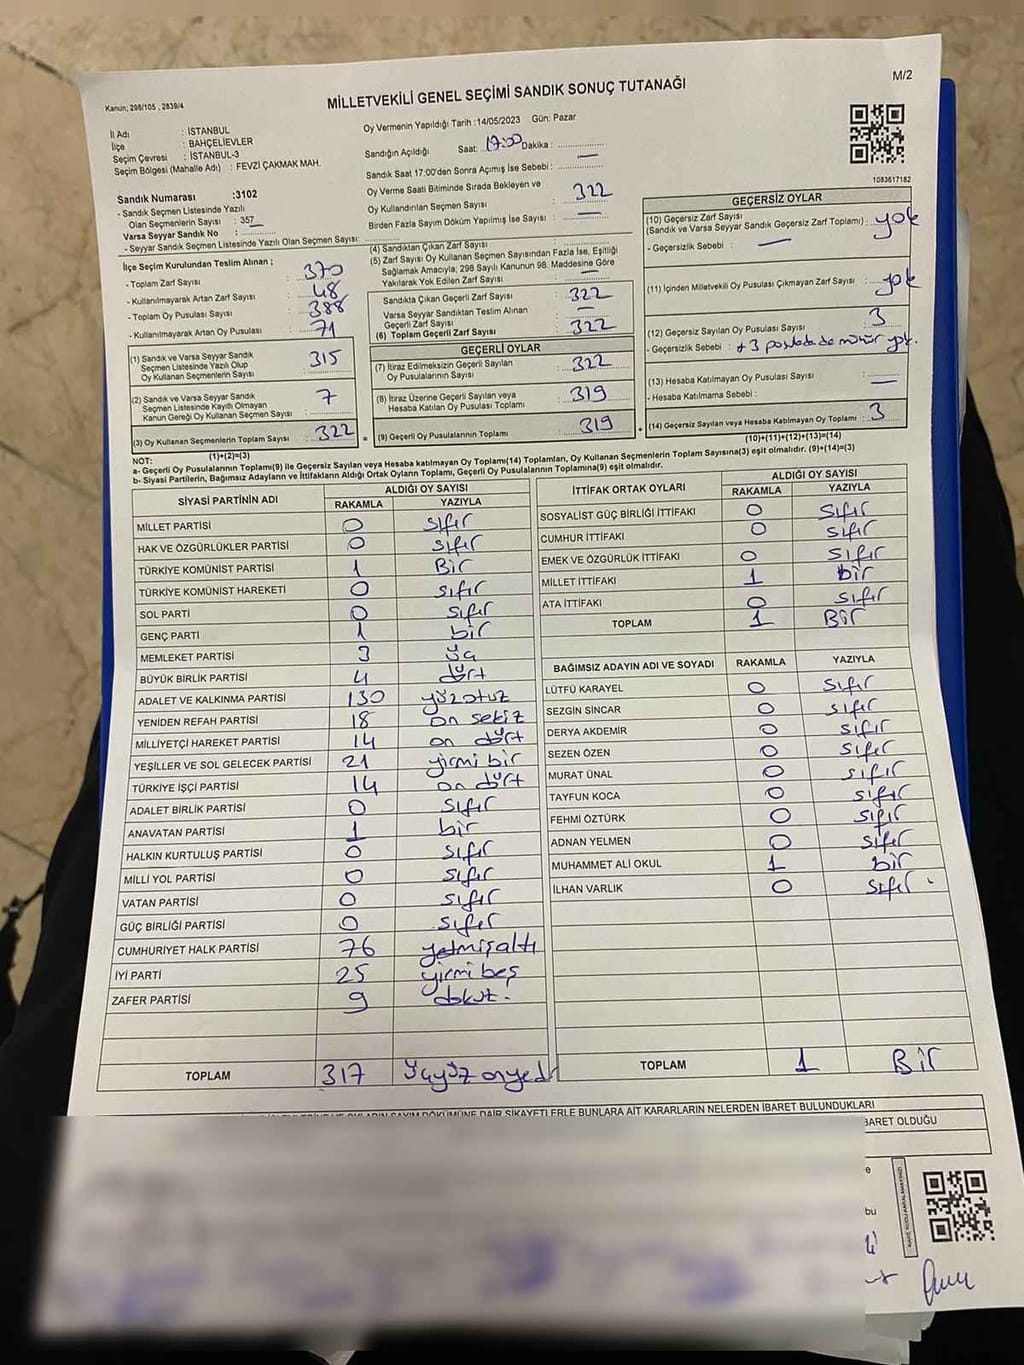 M/2
Kanun; 298/105 , 2839/4
MİLLETVEKİLİ GENEL SEÇİMİ SANDIK SONUÇ TUTANAĞI
İl Adı : İSTANBUL
İlçe : BAHÇELİEVLER
Seçim Çevresi : İSTANBUL-3
Seçim Bölgesi (Mahalle Adı) : FEVZİ ÇAKMAK MAH.
Sandık Numarası :3102
- Sandık Seçmen Listesinde Yazılı
Olan Seçmenlerin Sayısı : 357
Varsa Seyyar Sandık No :
- Seyyar Sandık Seçmen Listesinde Yazılı Olan Seçmen Sayısı:
Oy Vermenin Yapıldığı Tarih :14/05/2023 Gün: Pazar
Sandığın Açıldığı Saat: 17:00 Dakika :
Sandık Saat 17:00'den Sonra Açımış İse Sebebi : —
Oy Verme Saati Bitiminde Sırada Bekleyen ve
Oy Kullandırılan Seçmen Sayısı : 322
Birden Fazla Sayım Döküm Yapılmış İse Sayısı : —
1083617182
İlçe Seçim Kurulundan Teslim Alınan ;
- Toplam Zarf Sayısı : 370
- Kullanılmayarak Artan Zarf Sayısı : 48
- Toplam Oy Pusulası Sayısı : 388
- Kullanılmayarak Artan Oy Pusulası : 71
(1) Sandık ve Varsa Seyyar Sandık
Seçmen Listesinde Yazılı Olup
Oy Kullanan Seçmenlerin Sayısı : 315
(2) Sandık ve Varsa Seyyar Sandık
Seçmen Listesinde Kayıtlı Olmayan
Kanun Gereği Oy Kullanan Seçmen Sayısı : 7
(3) Oy Kullanan Seçmenlerin Toplam Sayısı : 322
(1)+(2)=(3)
(4) Sandıktan Çıkan Zarf Sayısı :
(5) Zarf Sayısı Oy Kullanan Seçmen Sayısından Fazla İse, Eşitliği
Sağlamak Amacıyla; 298 Sayılı Kanunun 98. Maddesine Göre
Yakılarak Yok Edilen Zarf Sayısı : —
Sandıkta Çıkan Geçerli Zarf Sayısı : 322
Varsa Seyyar Sandıktan Teslim Alınan
Geçerli Zarf Sayısı : —
(6) Toplam Geçerli Zarf Sayısı : 322
GEÇERLİ OYLAR
(7) İtiraz Edilmeksizin Geçerli Sayılan
Oy Pusulalarının Sayısı : 322
(8) İtiraz Üzerine Geçerli Sayılan veya
Hesaba Katılan Oy Pusulası Toplamı : 319
= (9) Geçerli Oy Pusulalarının Toplamı : 319
GEÇERSİZ OYLAR
(10) Geçersiz Zarf Sayısı
(Sandık ve Varsa Seyyar Sandık Geçersiz Zarf Toplamı) : yok
- Geçersizlik Sebebi : —
(11) İçinden Milletvekili Oy Pusulası Çıkmayan Zarf Sayısı : yok
(12) Geçersiz Sayılan Oy Pusulası Sayısı : 3
- Geçersizlik Sebebi : 3 pusulada da mühür yok.
(13) Hesaba Katılmayan Oy Pusulası Sayısı : —
- Hesaba Katılmama Sebebi :
+ (14) Geçersiz Sayılan veya Hesaba Katılmayan Oy Toplamı : 3
(10)+(11)+(12)+(13)=(14)
NOT:
a- Geçerli Oy Pusulaları Toplamı(9) ile Geçersiz Sayılan veya Hesaba katılmayan Oy Toplamı(14) Toplamları, Oy Kullanan Seçmenlerin Toplam Sayısına(3) eşit olmalıdır. (9)+(14)=(3)
b- Siyasi Partilerin, Bağımsız Adayların ve İttifakların Aldığı Ortak Oyların Toplamı, Geçerli Oy Pusulalarının Toplamına(9) eşit olmalıdır.
SİYASİ PARTİNİN ADI ALDIĞI OY SAYISI
RAKAMLA YAZIYLA
MİLLET PARTİSİ 0 sıfır
HAK VE ÖZGÜRLÜKLER PARTİSİ 0 sıfır
TÜRKİYE KOMÜNİST PARTİSİ 1 Bir
TÜRKİYE KOMÜNİST HAREKETİ 0 sıfır
SOL PARTİ 0 sıfır
GENÇ PARTİ 1 bir
MEMLEKET PARTİSİ 3 üç
BÜYÜK BİRLİK PARTİSİ 4 dört
ADALET VE KALKINMA PARTİSİ 130 yüzotuz
YENİDEN REFAH PARTİSİ 18 on sekiz
MİLLİYETÇİ HAREKET PARTİSİ 14 on dört
YEŞİLLER VE SOL GELECEK PARTİSİ 21 yirmi bir
TÜRKİYE İŞÇİ PARTİSİ 14 on dört
ADALET BİRLİK PARTİSİ 0 sıfır
ANAVATAN PARTİSİ 1 bir
HALKIN KURTULUŞ PARTİSİ 0 sıfır
MİLLİ YOL PARTİSİ 0 sıfır
VATAN PARTİSİ 0 sıfır
GÜÇ BİRLİĞİ PARTİSİ 0 sıfır
CUMHURİYET HALK PARTİSİ 76 yetmişaltı
İYİ PARTİ 25 yirmi beş
ZAFER PARTİSİ 9 dokuz.
TOPLAM 317 üçyüz onyedi
İTTİFAK ORTAK OYLARI ALDIĞI OY SAYISI
RAKAMLA YAZIYLA
SOSYALİST GÜÇ BİRLİĞİ İTTİFAKI 0 sıfır
CUMHUR İTTİFAKI 0 sıfır
EMEK VE ÖZGÜRLÜK İTTİFAKI 0 sıfır
MİLLET İTTİFAKI 1 bir
ATA İTTİFAKI 0 sıfır
TOPLAM 1 Bir
BAĞIMSIZ ADAYIN ADI VE SOYADI RAKAMLA YAZIYLA
LÜTFÜ KARAYEL 0 sıfır
SEZGİN SİNCAR 0 sıfır
DERYA AKDEMİR 0 sıfır
SEZEN ÖZEN 0 sıfır
MURAT ÜNAL 0 sıfır
TAYFUN KOCA 0 sıfır
FEHMİ ÖZTÜRK 0 sıfır
ADNAN YELMEN 0 sıfır
MUHAMMET ALİ OKUL 1 bir
İLHAN VARLIK 0 sıfır
TOPLAM 1 Bir
SAYIM DÖKÜMÜNE DAİR ŞİKAYETLERLE BUNLARA AİT KARARLARIN NELERDEN İBARET BULUNDUKLARI
BARET OLDUĞU